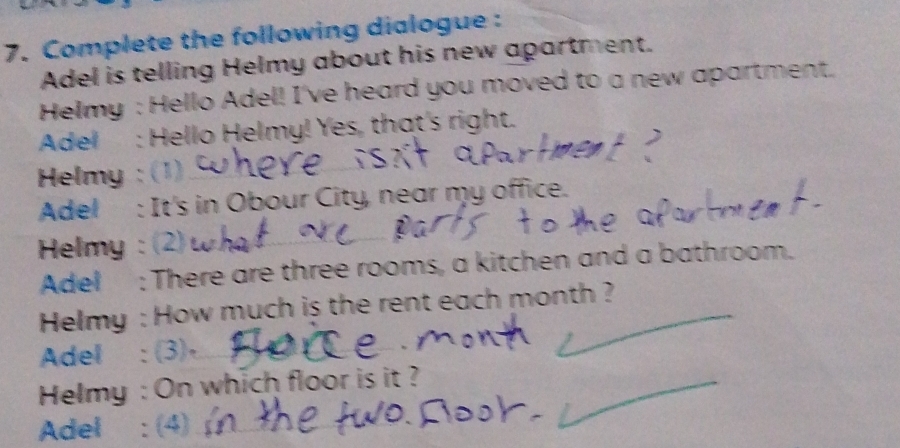 7. Complete the following dialogue :
Adel is telling Helmy about his new apartment.
Helmy : Hello Adel! I've heard you moved to a new apartment.
Adel : Hello Helmy! Yes, that's right.
Helmy : (1) where is it apartment ?
Adel : It's in Obour City, near my office.
Helmy : (2) what are parts to the apartment.
Adel : There are three rooms, a kitchen and a bathroom.
Helmy : How much is the rent each month ?
Adel : (3) month
Helmy : On which floor is it ?
Adel : (4) in the two. floor.